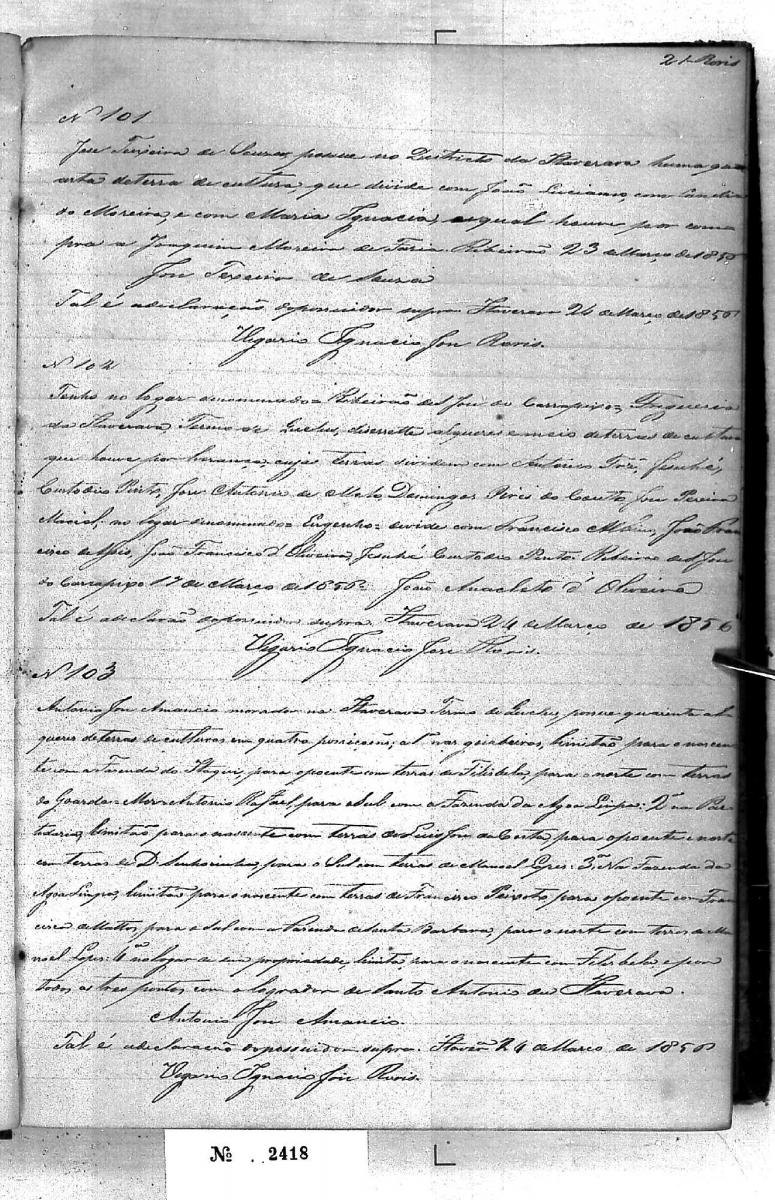 21 Roris
Nº 101
Jose Teixeira de Souza, possue no Districto da Itaverava huma qu
arta de terra de cultura que divide com João Luciano, com Candi
do Moreira, e com Maria Ignacia, a qual houve por com
pra a Joaquim Moreira de Faria. Ribeirão 23 de Março de 1856
Jose Teixeira de Souza
Tal é a declaração do possuidor supra Itaverava 24 de Março de 1856
Vigario Ignacio Jose Roris.
Nº 102
Tenho no logar denominado = Ribeirão de S Jose do Carrapixo = Freguesia
da Itaverava, Termo de Queluz, desesette alqueres e meio de terras de cultura
que houve por herança, cujas terras dividem com Antonio José,
Custodio Pinto, Jose Antonio de Melo, Domingos do Couto, Jose Pereira
Maciel: no logar denominado = Engenho = divide com Francisco João Fran
cisco de Assis, João Francisco d'Oliveira, Custodio Pinto. Ribeirão de S Jose
do Carrapixo 17 de Março de 1856 = João Anacleto d'Oliveira
Tal é a declaração do possuidor supra. Itaverava 24 de Março de 1856
Vigario Ignacio Jose Roris.
Nº 103
Antonio Jose Amancio morador na Itaverava Termo de Queluz, possue quarenta al
queres de terras de culturas em quatro possiçoens; a 1ª nas limitão, para o nascen
te com a Fazenda do para o poente com terras de para o norte com terras
do Guarda = Mor = Antonio Rafael, para o Sul com a Fazenda da Agoa Limpa: 2ª na
limitão para o nascente com terras do Luis Jose da Costa, para o poente e norte
com terras de D. para o Sul com terras de Manoel Lopes: 3ª Na Fazenda da
Agoa Limpa, limitão para o nascente com terras de Francisco Peixoto, para o poente com Fran
cisco de Mattos, para o sul com a Fazenda de Santa Barbara, para o norte com terras de Ma
noel Lopes: 4ª no logar de sua propriedade, limita, para o nascente com e por
todos os tres pontos com o logrador de Santo Antonio da Itaverava.
Antonio Jose Amancio.
Tal é a declaração do possuidor supra. 24 de Março de 1856
Vigario Ignacio Jose Roris.
Nº 2418